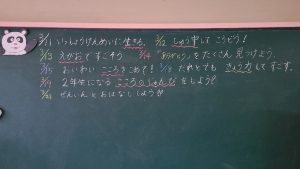 3/1 いっしょうけんめいに生きる。 3/2 しゅう中して こうどう!
3/3 えがおですごそう 3/4 「ありがとう」をたくさん見つけよう。
3/5 おいわい こころをこめて! 3/8 だれとでも きょう力してすごす。
3/9 2年生になる こころのじゅんびをしよう!
ぜんいんとおはなししよう